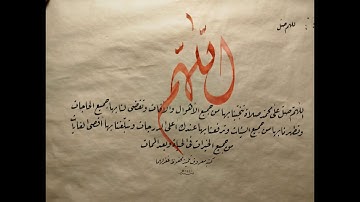 اللهم صل
اللهم
اللهم صل على محمد صلاة تنجينا بها من جميع الاهوال والآفات وتقضى لنا بها جميع الحاجات
وتطهرنا بها من جميع السيئات وترفعنا بها عندك اعلى الدرجات وتبلغنا بها اقصى الغايات
من جميع الخيرات فى الحياة وبعد الممات
كتبه